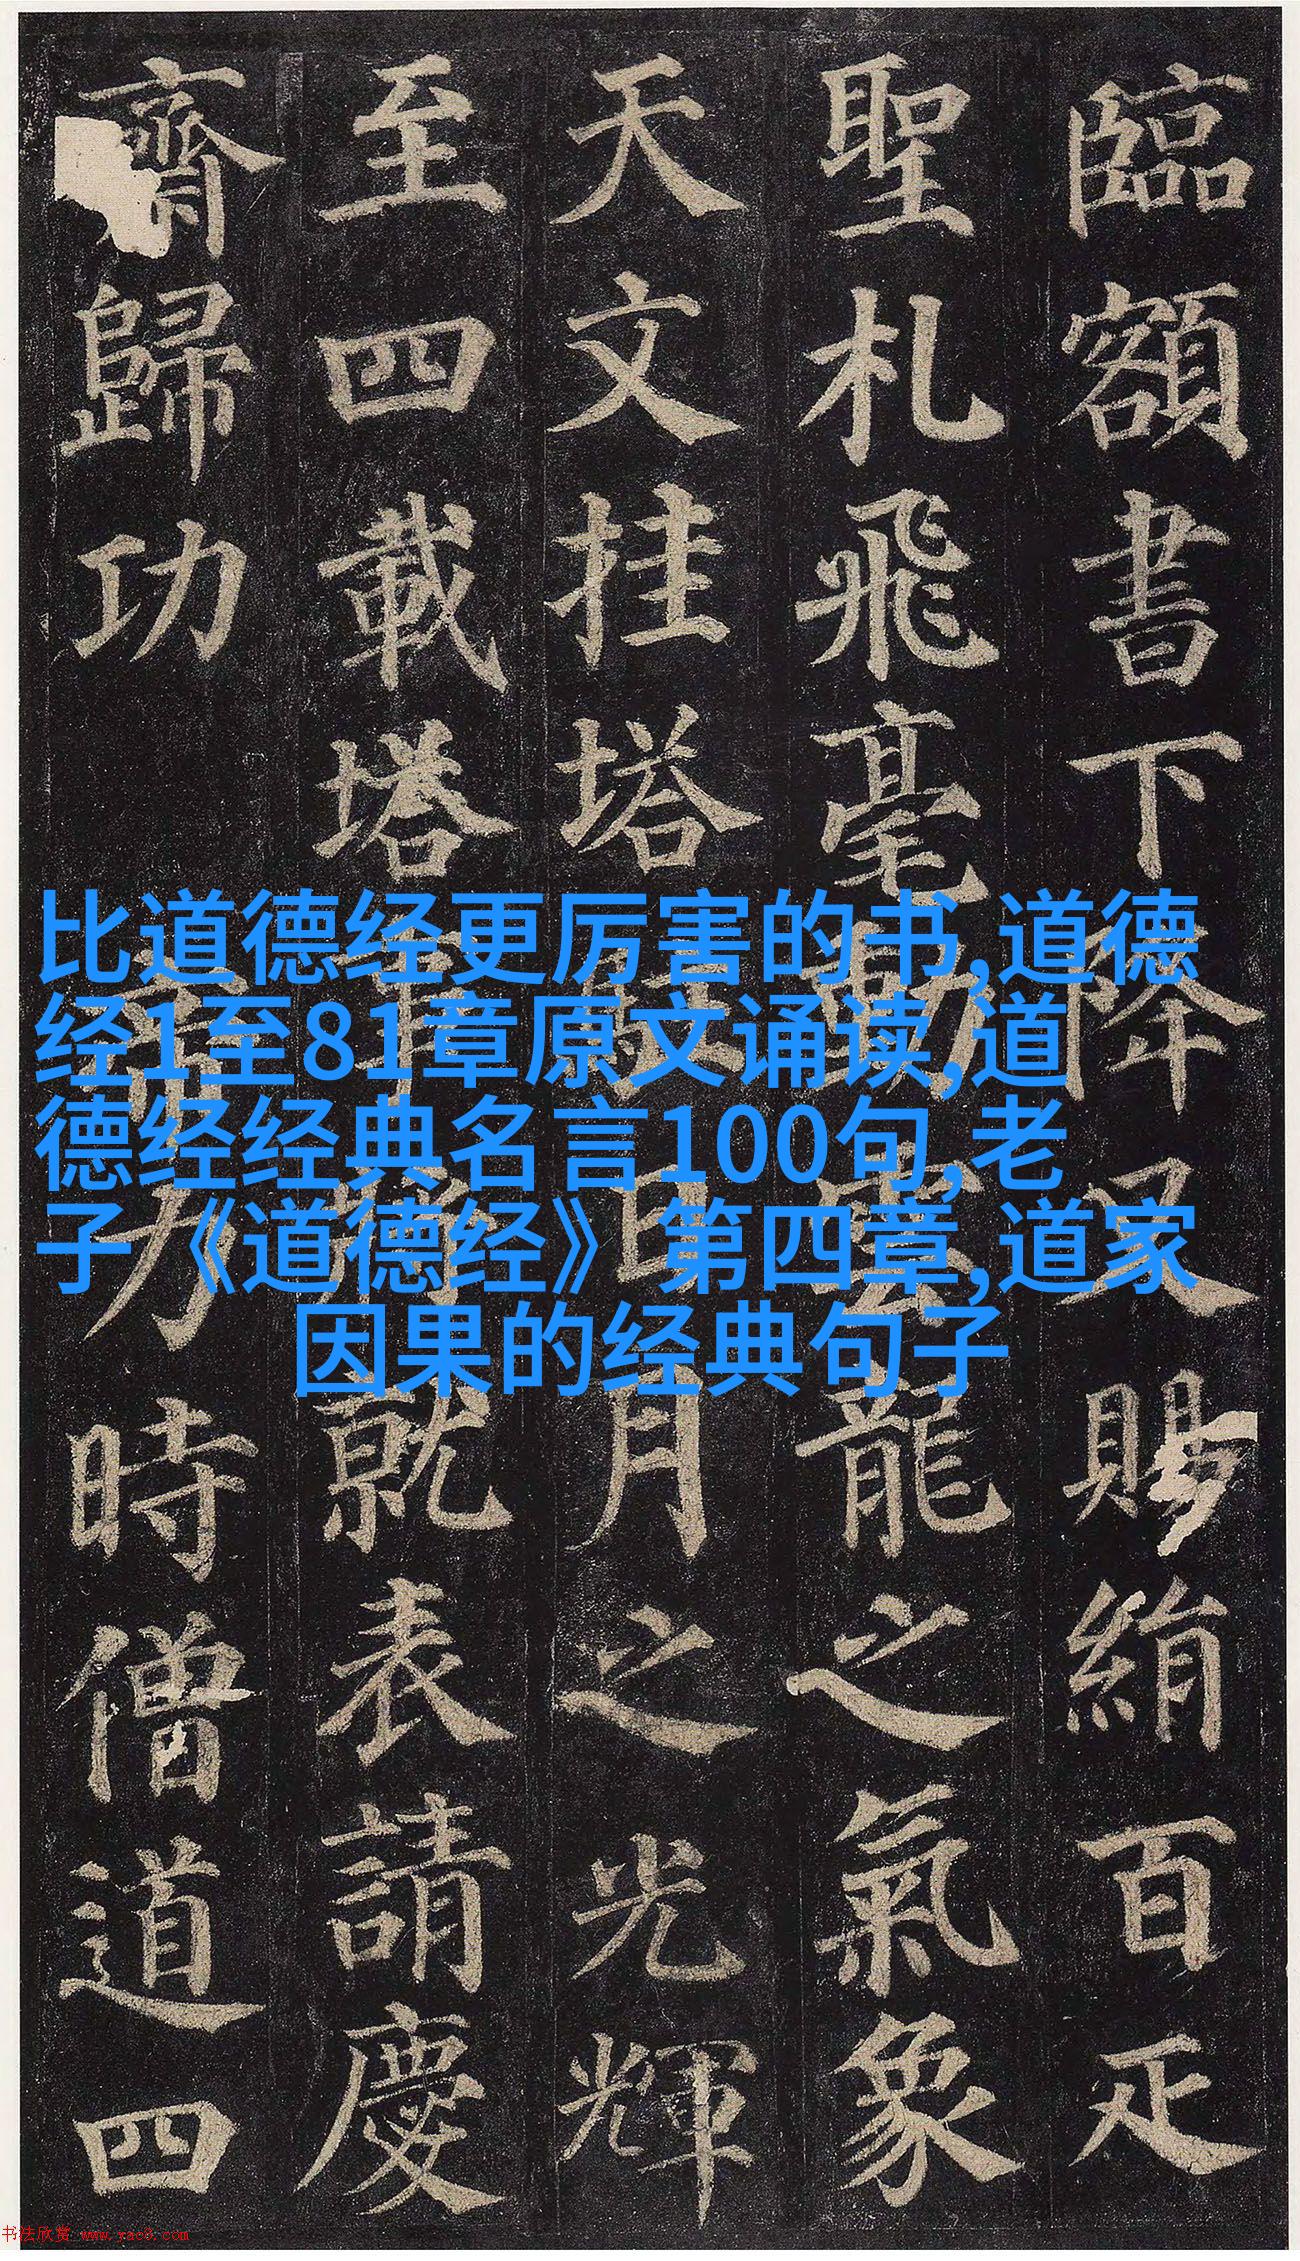 臨額書下降又賜絹百疋
聖札飛毫動雲龍之氣象
天文挂塔駐日月之光輝
至四載塔事將就表請慶
齋歸功帝力時僧道四
比道德经更厉害的书,道德
经1至81章原文诵读,道
德经经典名言100句,老
子《道德经》第四章,道家
因果的经典句子
书法欣赏 www.yac8.com